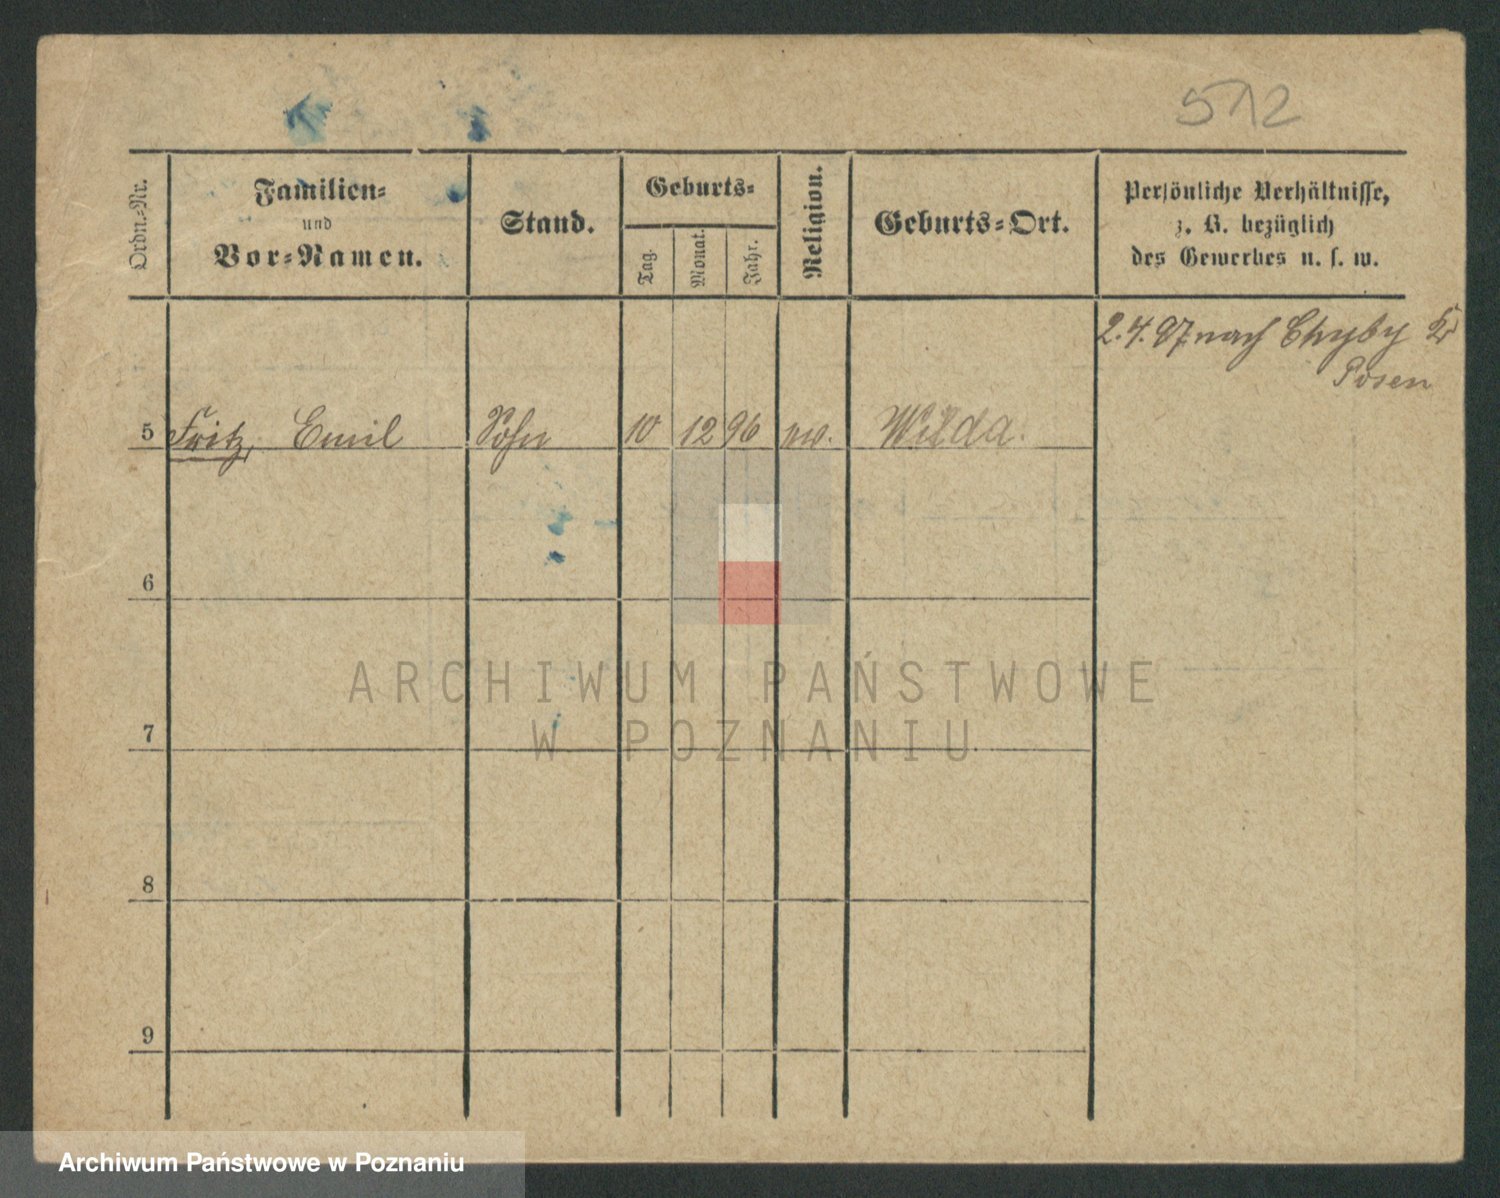 512
Ordn.=Nr.
Familien=
und
Vor=Namen.
Stand.
Geburts=
Tag.
Monat.
Jahr.
Religion.
Geburts=Ort.
Persönliche Verhältnisse,
z. B. bezüglich
des Gewerbes u. s. w.
2.4.97 nach Chyby Kr
Posen
5 Fritz, Emil Sohn 10 12 96 ev. Wilda.
6
7
8
9
ARCHIWUM PAŃSTWOWE
W POZNANIU
Archiwum Państwowe w Poznaniu